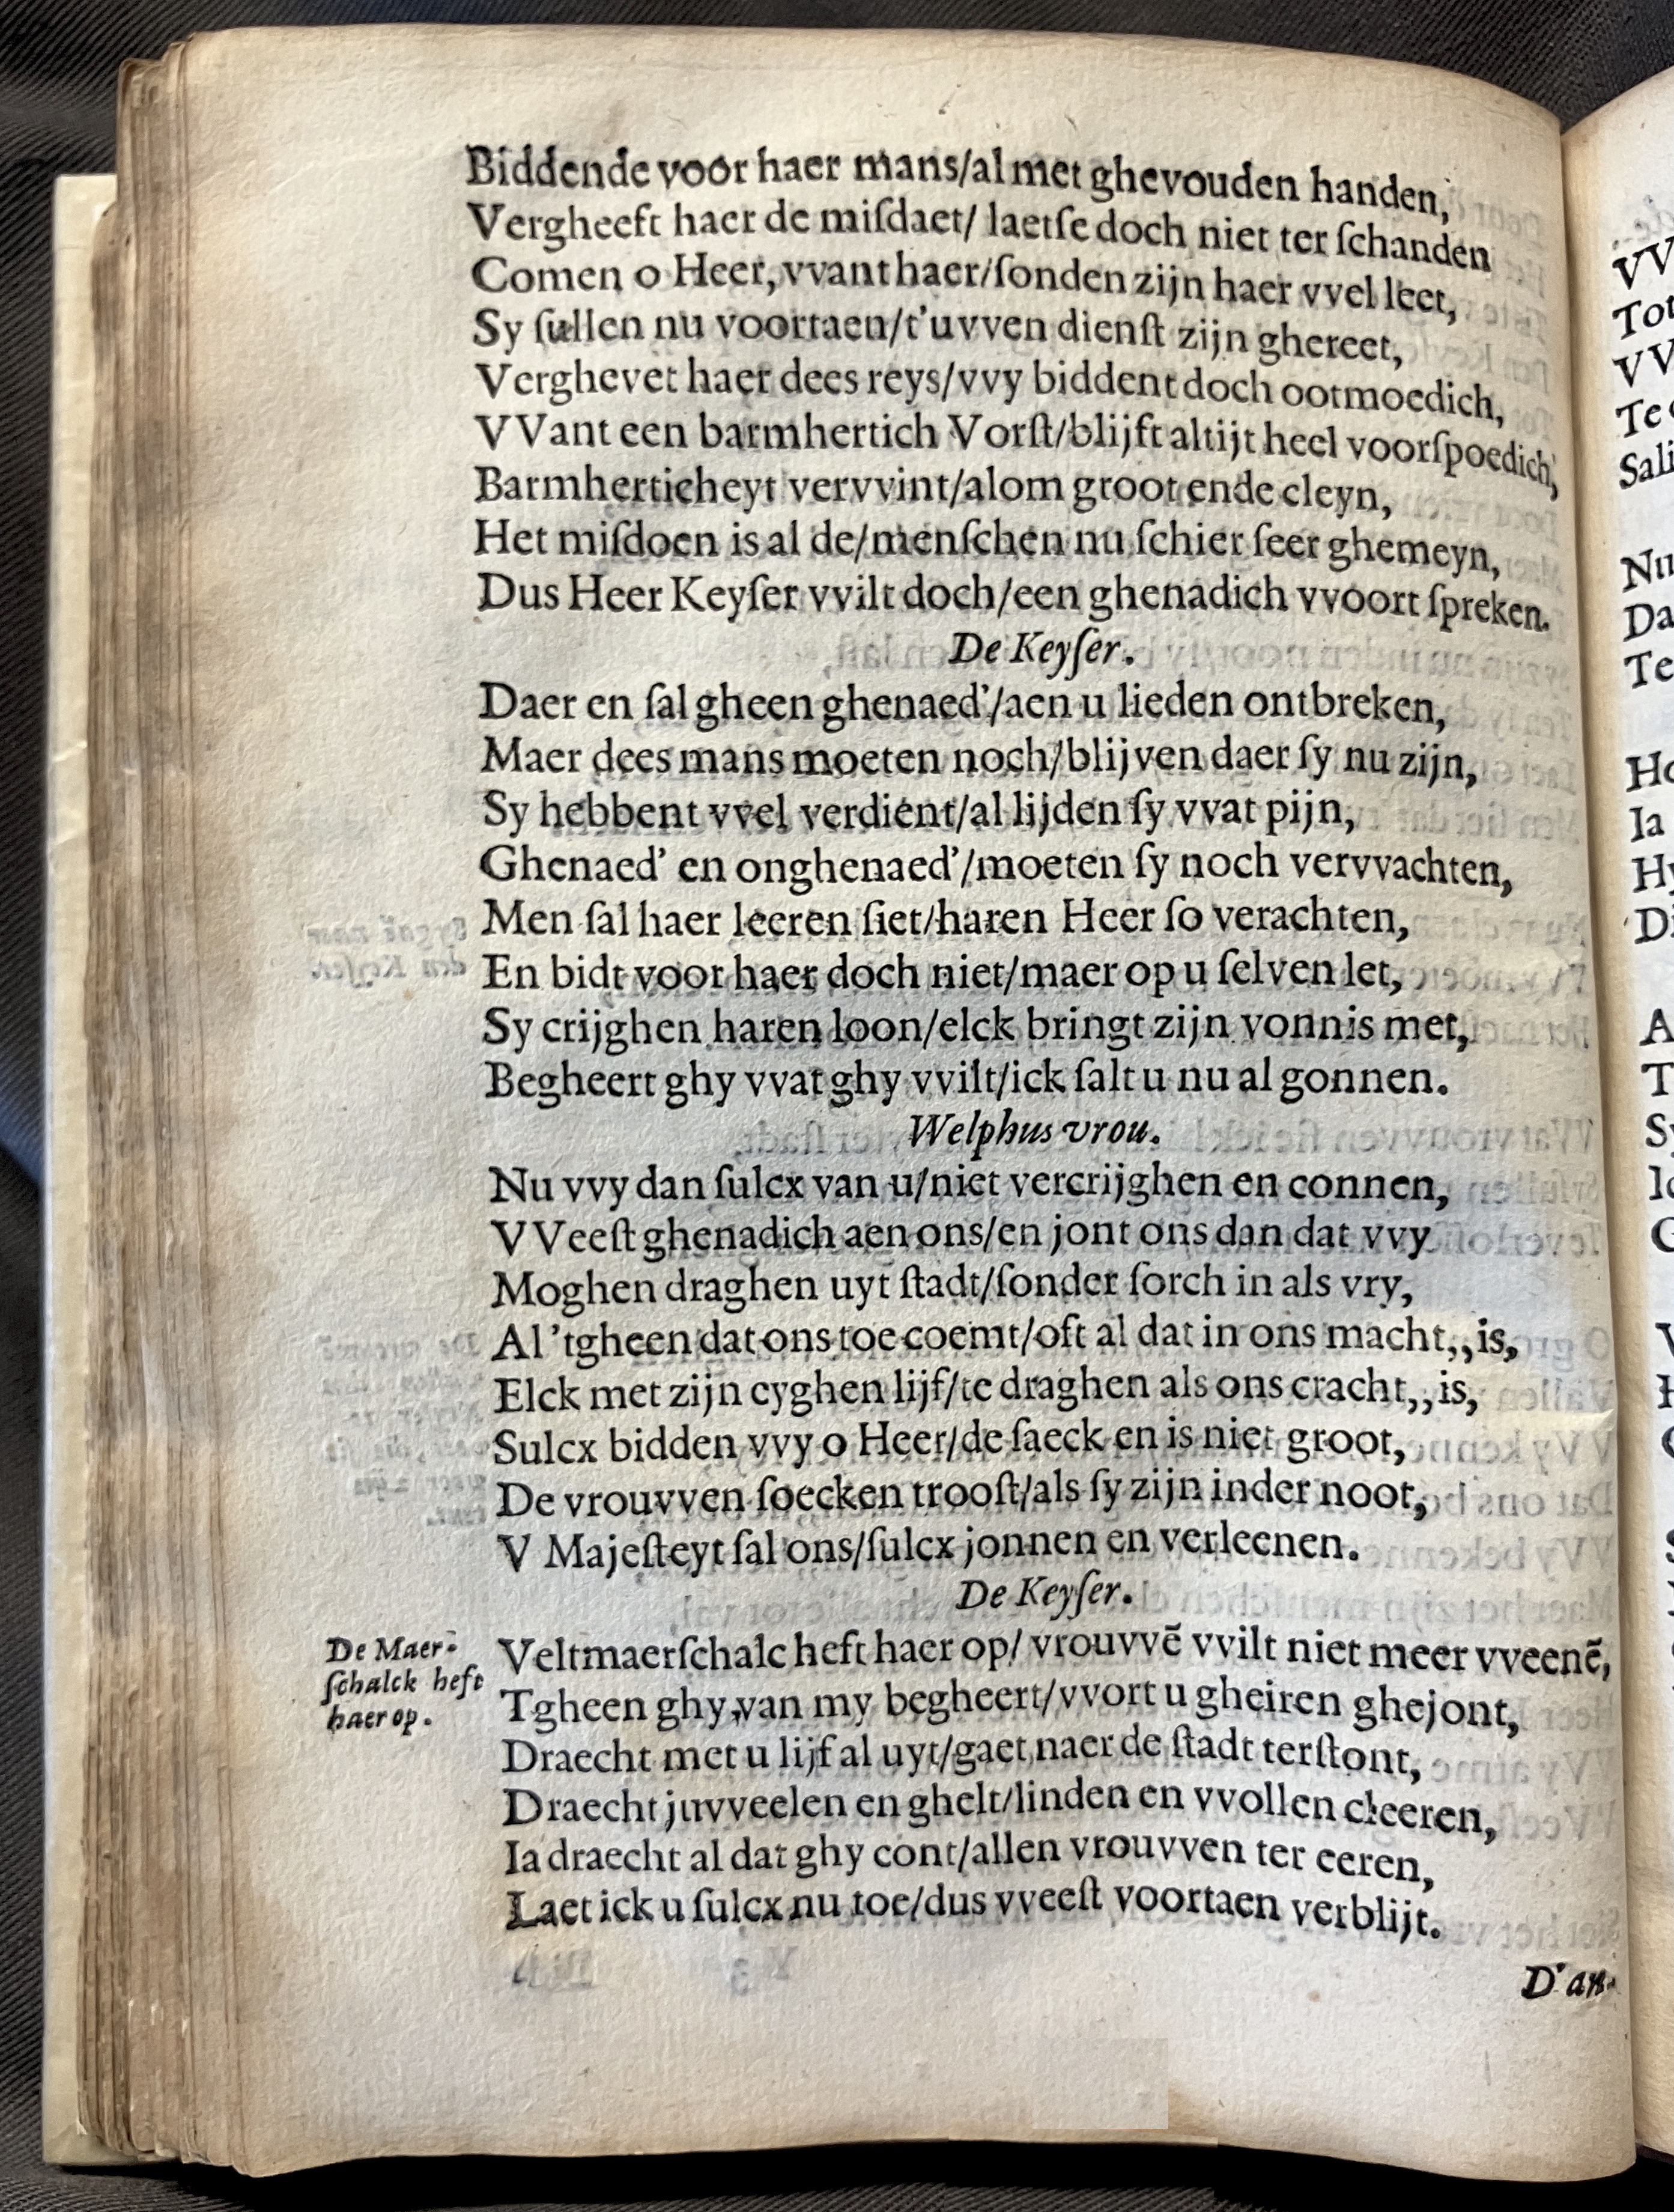 Biddende voor haer mans/al met ghevouden handen,
Vergheeft haer de miſdaet/ laetſe doch niet ter ſchanden
Comen o Heer, vvant haer/ſonden zijn haer vvel leet,
Sy ſullen nu voortaen/t'uvven dienſt zijn ghereet,
Verghevet haer dees reys/vvy biddent doch ootmoedich,
VVant een barmhertich Vorſt/blijft altijt heel voorſpoedich,
Barmherticheyt vervvint/alom groot ende cleyn,
Het miſdoen is al de/menſchen nu ſchier ſeer ghemeyn,
Dus Heer Keyſer vvilt doch/een ghenadich vvoort ſpreken.
De Keyſer.
Daer en ſal gheen ghenaed'/aen u lieden ontbreken,
Maer dees mans moeten noch/blijven daer ſy nu zijn,
Sy hebbent vvel verdient/al lijden ſy vvat pijn,
Ghenaed' en onghenaed'/moeten ſy noch vervvachten,
Men ſal haer leeren ſiet/haren Heer ſo verachten,
En bidt voor haer doch niet/maer op u ſelven let,
Sy crijghen haren loon/elck bringt zijn vonnis met,
Begheert ghy vvat ghy vvilt/ick ſalt u nu al gonnen.
Welphus vrou.
Nu vvy dan ſulcx van u/niet vercrijghen en connen,
VVeeſt ghenadich aen ons/en jont ons dan dat vvy
Moghen draghen uyt ſtadt/ſonder ſorch in als vry,
Al 'tgheen dat ons toe coemt/oft al dat in ons macht,,is,
Elck met zijn eyghen lijf/te draghen als ons cracht,,is,
Sulcx bidden vvy o Heer/de ſaeck en is niet groot,
De vrouvven ſoecken trooſt/als ſy zijn inder noot,
V Majeſteyt ſal ons/ſulcx jonnen en verleenen.
De Keyſer.
De Maer-
ſchalck heft
haer op.
Veltmaerſchalc heft haer op/ vrouvvē vvilt niet meer vveenē,
Tgheen ghy van my begheert/vvort u gheiren ghejont,
Draecht met u lijf al uyt/gaet naer de ſtadt terſtont,
Draecht juvveelen en ghelt/linden en vvollen cleeren,
Ia draecht al dat ghy cont/allen vrouvven ter eeren,
Laet ick u ſulcx nu toe/dus vveeſt voortaen verblijt.
D'an-
VV
Tot
VV
Te
Sali
Nu
Da
Te
Ho
Ia
Hy
Di
A
T
Sy
G